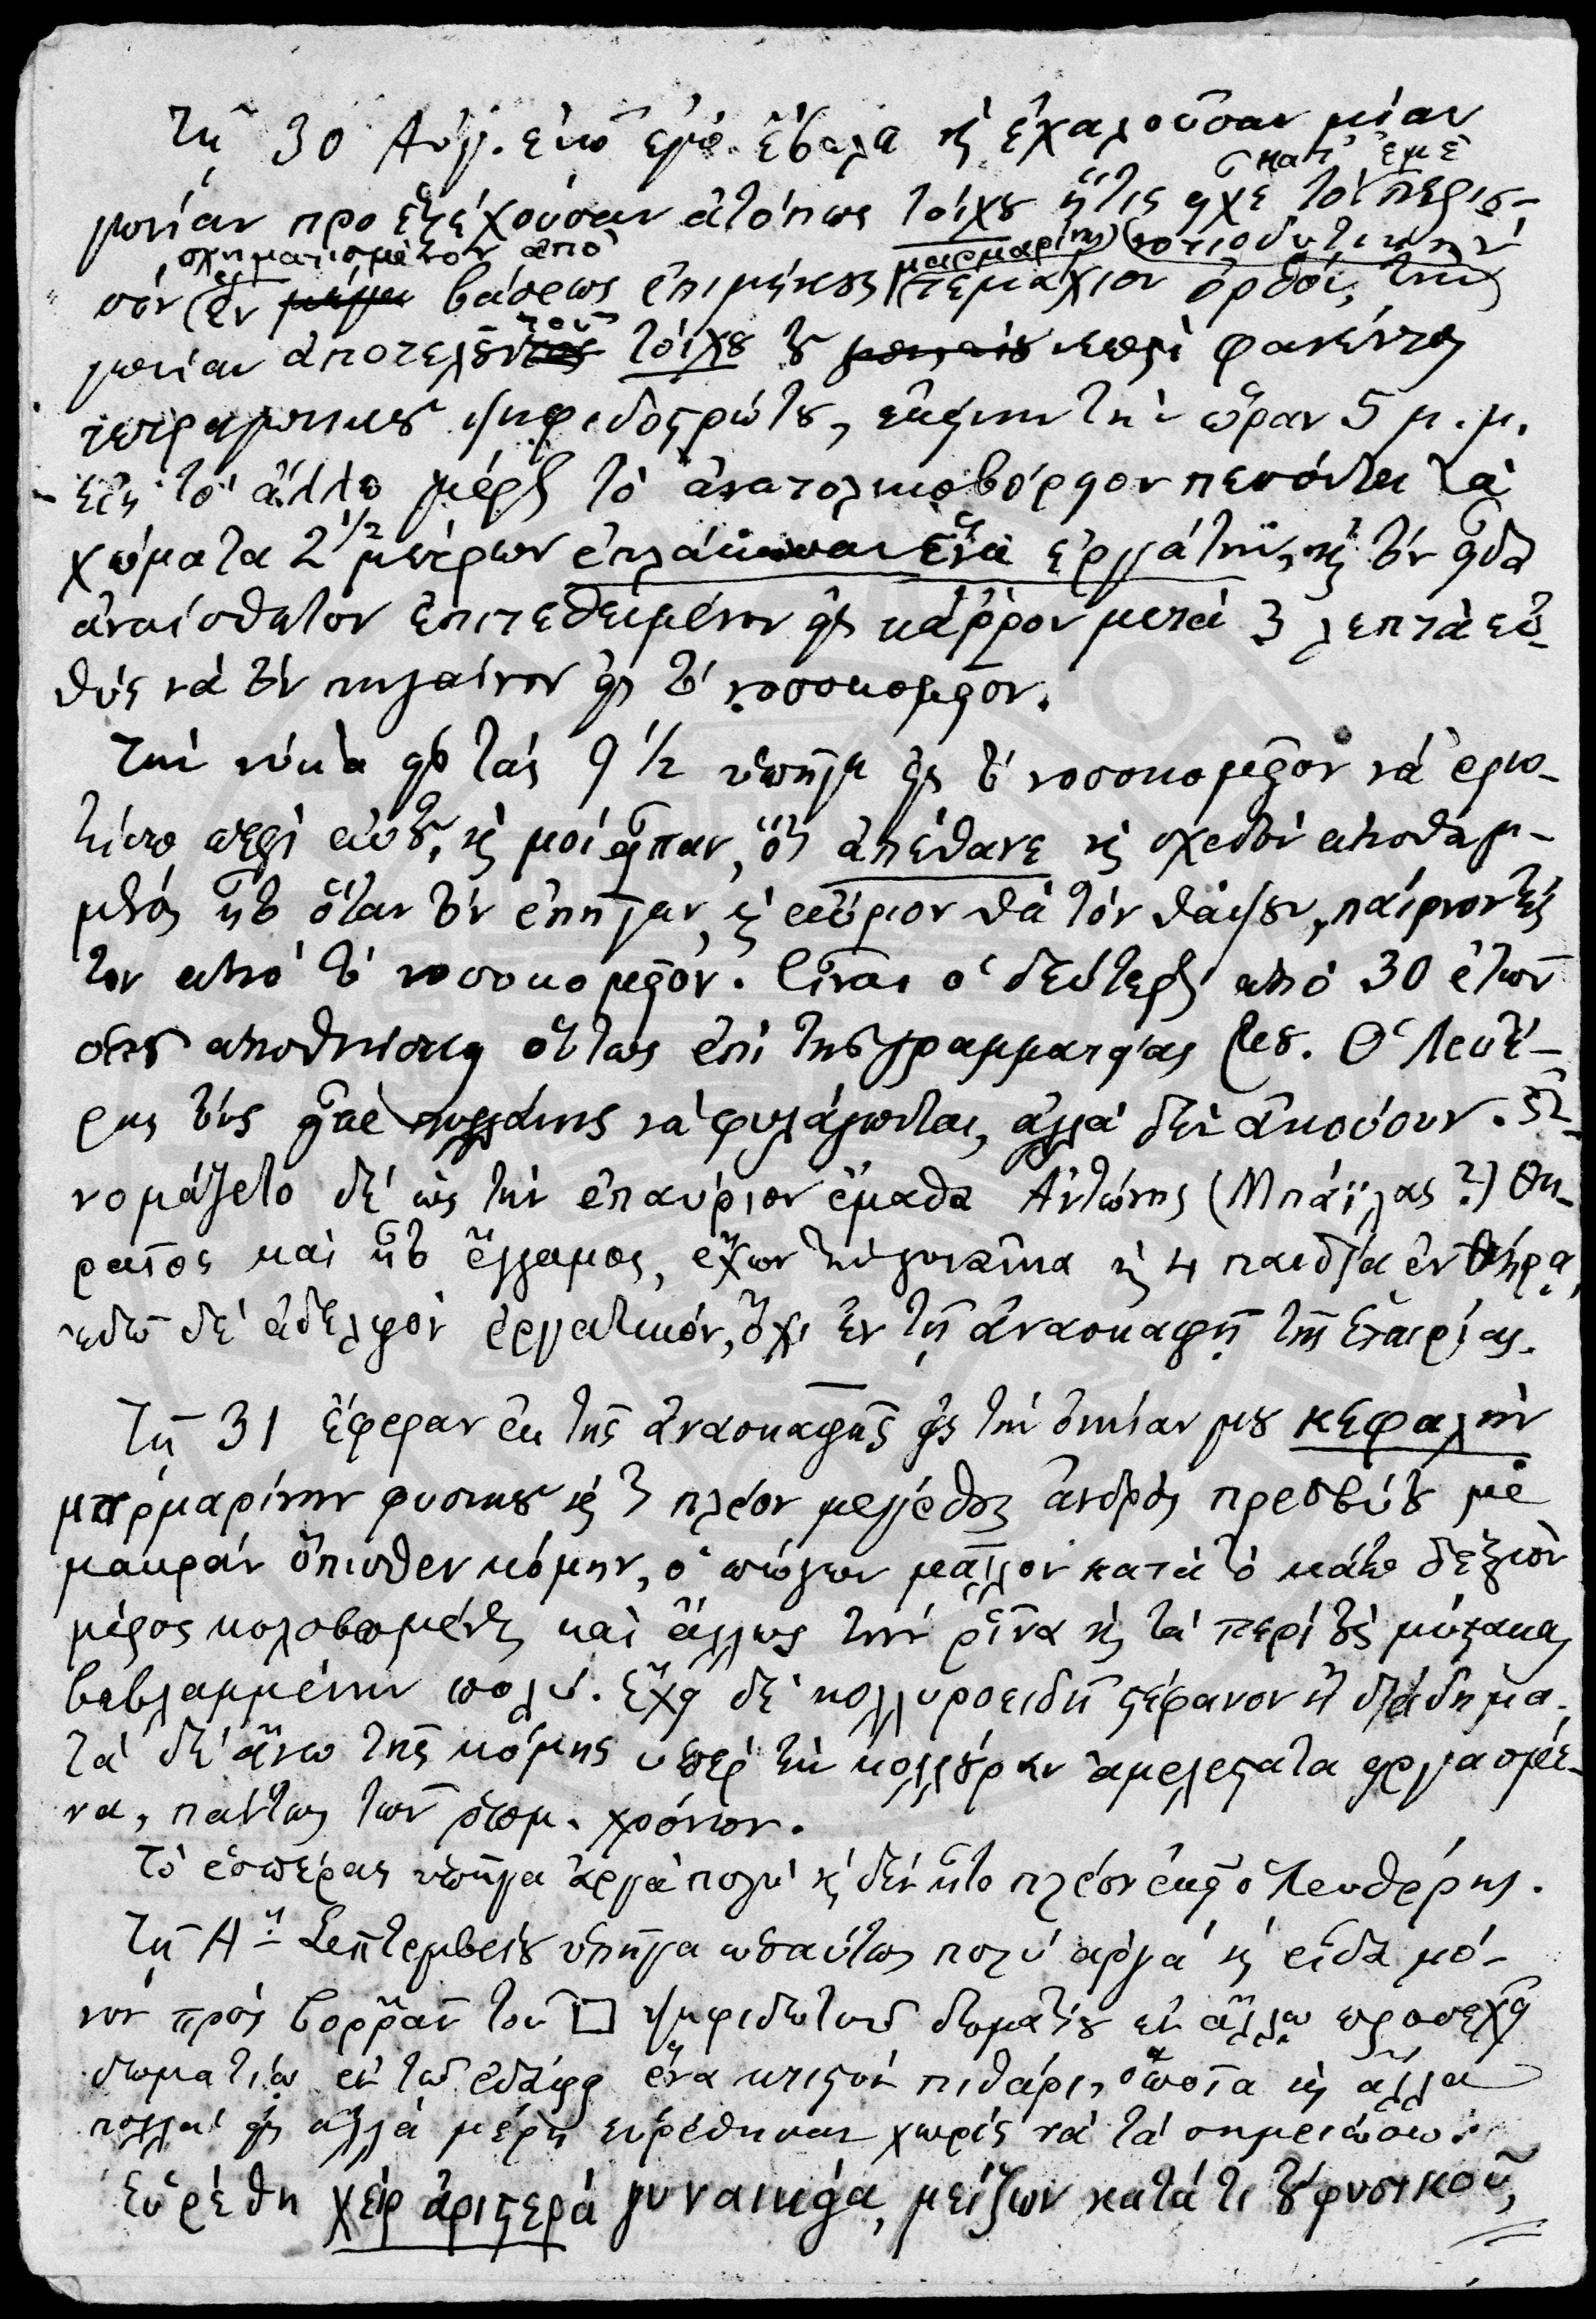 Τῇ 30 Αὐγ. ἐνῷ ἐγώ ἔβαλα καὶ ἐχαλοῦσαν μίαν
κατ' ἐμὲ
γωνίαν προεξέχουσαν ἀτόπως τοίχου ἥτις εἶχε τὸ περισ-
σχηματισμένον ἀπὸ μαρμαρίνης (νοτιοδυτικὴν)
σόν (ἓν βάσεως ἐπιμήκους τεμάχιον ὀρθόν, τὴν
γωνίαν ἀποτελοῦν τοῦ τοίχου τοῦ φανέντος
τετραγωνικοῦ ψηφιδοστρώτου, ἐκείνην τὴν ὥραν 5 μ.μ.
εἰς τὸ ἄλλο μέρος τὸ ἀνατολικοβόρειον πεσόντα τὰ
χώματα 2 1/2 μέτρων ἐπλάκωσαν ἕνα ἐργάτην, καὶ τὸν εἶδα
ἀναίσθητον ἐπιτεθειμένον εἰς κάρρον μετὰ 3 λεπτὰ εὐ-
θὺς νὰ τὸν πηγαίνουν εἰς τὸ νοσοκομεῖον.
Τὴν νύκτα εἰς τὰς 9 1/2 ὑπῆγα εἰς τὸ νοσοκομεῖον νὰ ἐρω-
τήσω περὶ αὐτοῦ, καὶ μοὶ εἶπαν, ὅτι ἀπέθανε καὶ σχεδὸν ἀποθαμ-
μένος ἦτο ὅταν τὸν ἐπῆγαν, καὶ αὔριον θὰ τὸν θάψουν, παίρνοντές
τον ἀπὸ τὸ νοσοκομεῖον. Εἶναι ὁ δεύτερος ἀπὸ 30 ἐτῶν
ὅπου ἀποθνήσκει οὕτως ἐπὶ τῆς γραμματείας μου. Ὁ Λευτέ-
ρης τοὺς εἶπε πολλάκις νὰ φυλάγωνται, ἀλλὰ δὲν ἀκούουν. Ὠ-
νομάζετο δὲ ὡς τὴν ἐπαύριον ἔμαθα Ἀντώνης (Μπάϊλας?) Θη-
ραῖος καὶ ἦτο ἔγγαμος, ἔχων τὴν γυναῖκα καὶ 4 παιδία ἐν Θήρᾳ,
ἐδῶ δὲ ἀδελφὸν ἐργατικόν, ὄχι ἐν τῇ ἀνασκαφῇ τῆς Ἑταιρίας.
Τῇ 31 ἔφεραν ἐκ τῆς ἀνασκαφῆς εἰς τὴν οἰκίαν μου κεφαλὴν
μαρμαρίνην φυσικοῦ καὶ πλέον μεγέθους ἀνδρὸς πρεσβύτου μὲ
μακρὰν ὄπισθεν κόμην, ὁ πώγων μᾶλλον κατὰ τὸ κάτω δεξιὸν
μέρος κολοβωμένος καὶ ἄλλως τὴν ῥῖνα καὶ τὰ περὶ τοὺς μύστακας
βεβλαμμένην πολύ. Ἔχει δὲ κολλυροειδῆ στέφανον ἢ διάδημα.
τὰ δὲ ἄνω τῆς κόμης ὑπὲρ τὴν κολλούραν ἀμελέστατα εἰργασμέ-
να, πάντως τῶν ῥωμ. χρόνων.
Τὸ ἑσπέρας ὑπῆγα ἀργὰ πολὺ καὶ δὲν ἦτο πλέον ἐκεῖ ὁ Λευθέρης.
Τῇ Αῃ Σεπτεμβρίου ὑπῆγα ὡσαύτως πολὺ ἀργὰ καὶ εἶδα μό-
νον πρὸς βορρᾶν τοῦ □ ψηφιδωτοῦ δωματίου ἐν ἄλλῳ προσεχεῖ
δωματίῳ ἐν τῷ ἐδάφει ἕνα κτιστὸν πιθάρι, ὁποῖα καὶ ἄλλα
πολλὰ εἰς ἄλλα μέρη εὑρέθησαν χωρὶς νὰ τὰ σημειώσω.
Εὑρέθη χεὶρ ἀριστερά γυναικεία, μείζων κατά τι τοῦ φυσικοῦ,